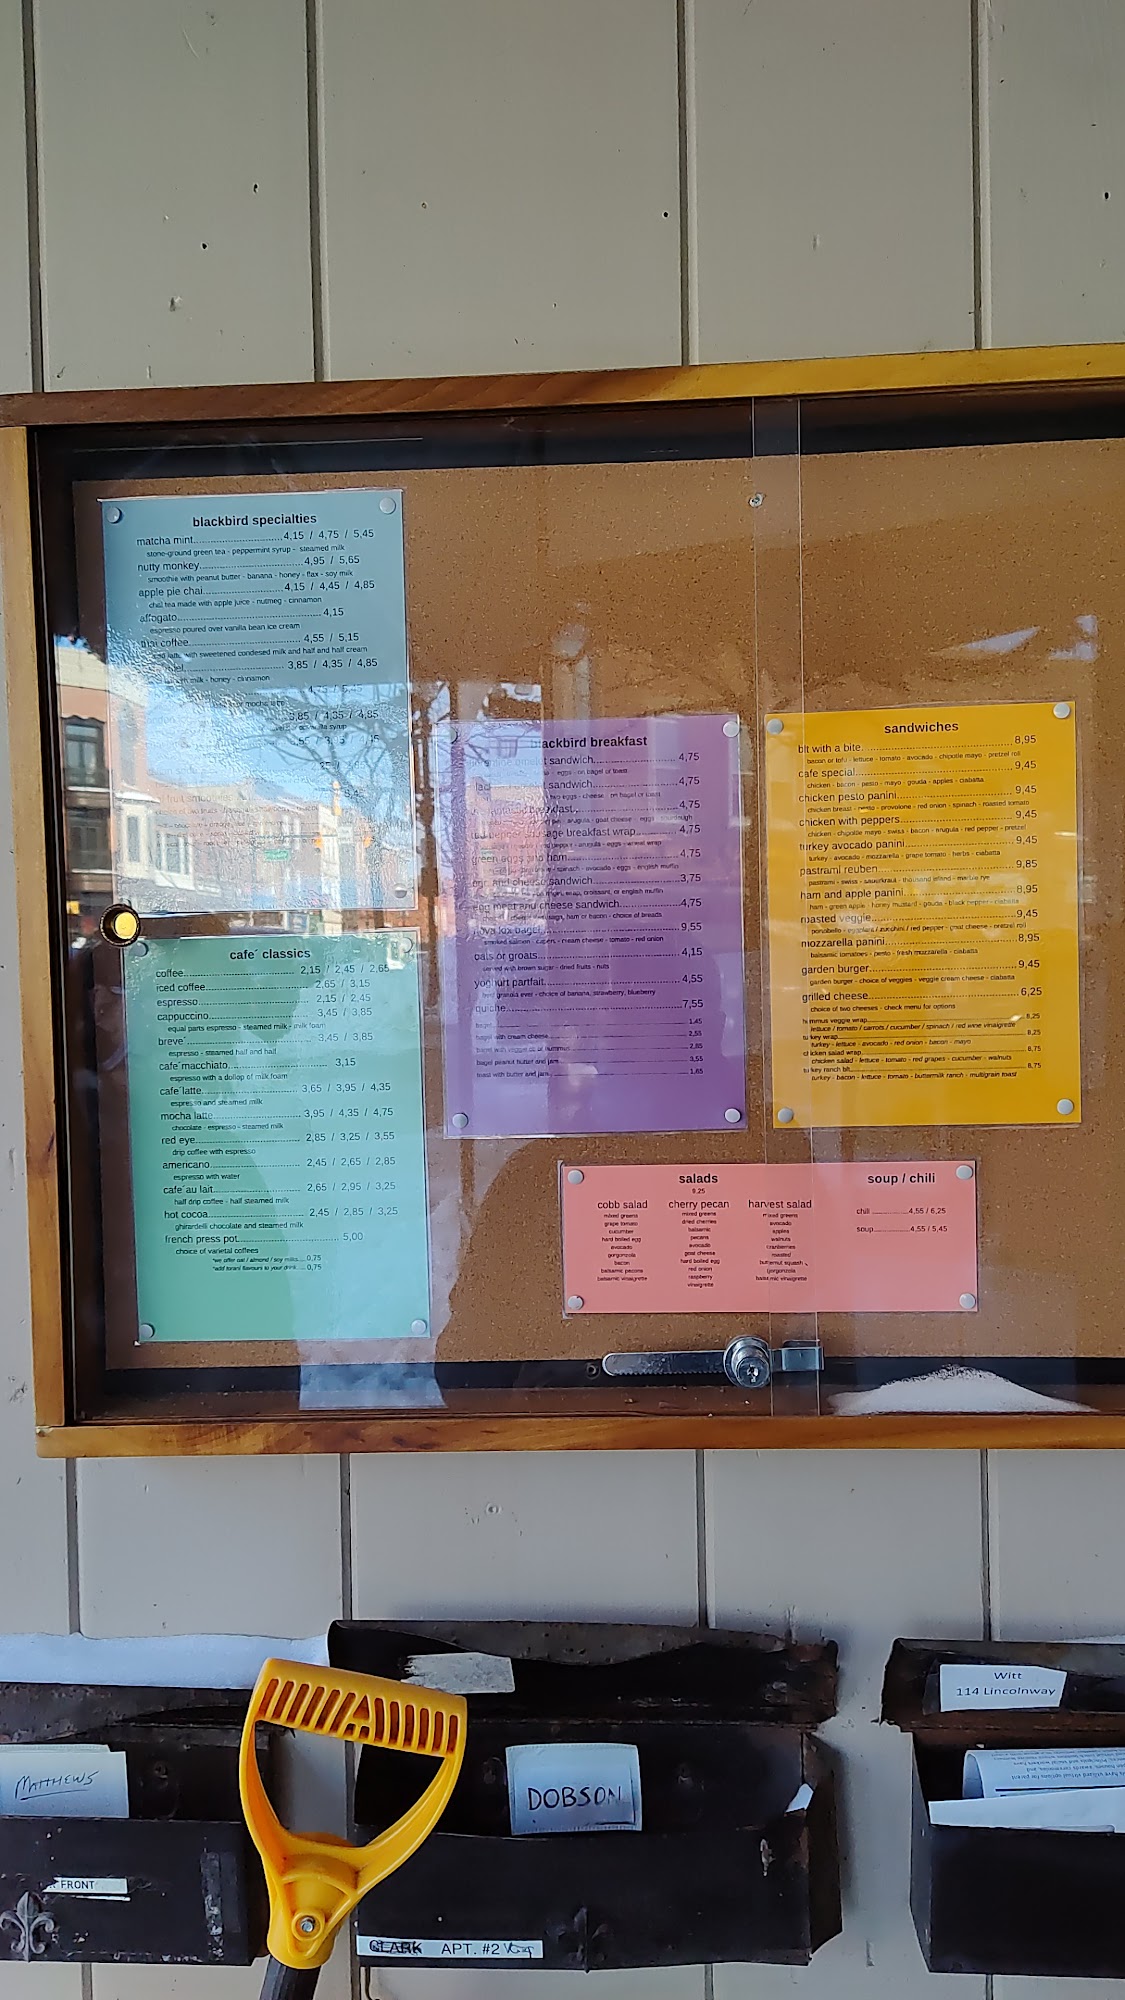 blackbird specialties
matcha mint 4,15 / 4,75 / 5,45
stone-ground green tea - peppermint syrup - steamed milk
nutty monkey 4,95 / 5,65
smoothie with peanut butter - banana - honey - flax - soy milk
apple pie chai 4,15 / 4,45 / 4,85
chai tea made with apple juice - nutmeg - cinnamon
affogato 4,15
espresso poured over vanilla bean ice cream
thai coffee 4,55 / 5,15
with sweetened condesed milk and half and half cream
3,85 / 4,35 / 4,85
milk - honey - cinnamon
4,75 / 5,45
3,85 / 4,35 / 4,85
syrup
cafe´ classics
coffee 2,15 / 2,45 / 2,65
iced coffee 2,65 / 3,15
espresso 2,15 / 2,45
cappuccino 3,45 / 3,85
equal parts espresso - steamed milk - milk foam
breve´ 3,45 / 3,85
espresso - steamed half and half
cafe´macchiato 3,15
espresso with a dollop of milk foam
cafe´latte 3,65 / 3,95 / 4,35
espresso and steamed milk
mocha latte 3,95 / 4,35 / 4,75
chocolate - espresso - steamed milk
red eye 2,85 / 3,25 / 3,55
drip coffee with espresso
americano 2,45 / 2,65 / 2,85
espresso with water
cafe´au lait 2,65 / 2,95 / 3,25
half drip coffee - half steamed milk
hot cocoa 2,45 / 2,85 / 3,25
ghirardelli chocolate and steamed milk
french press pot 5,00
choice of varietal coffees
*we offer oat / almond / soy milks 0,75
*add torani flavours to your drink 0,75
blackbird breakfast
sandwich 4,75
eggs - on bagel or toast
sandwich 4,75
two eggs - cheese - on bagel or toast
breakfast 4,75
arugula - goat cheese - eggs - sourdough
red pepper sausage breakfast wrap 4,75
red pepper - arugula - eggs - wheat wrap
green eggs and ham 4,75
spinach - avocado - eggs - english muffin
egg and cheese sandwich 3,75
wrap, croissant, or english muffin
egg meat and cheese sandwich 4,75
ham or bacon - choice of breads
nova lox bagel 9,55
smoked salmon - capers - cream cheese - tomato - red onion
oats or groats 4,15
served with brown sugar - dried fruits - nuts
yoghurt partfait 4,55
best granola ever - choice of banana, strawberry, blueberry
quiche 7,55
bagel 1,45
bagel with cream cheese 2,55
bagel with veggie cc or hummus 2,85
bagel peanut butter and jam 3,55
toast with butter and jam 1,65
sandwiches
blt with a bite 8,95
bacon or tofu - lettuce - tomato - avocado - chipotle mayo - pretzel roll
cafe special 9,45
chicken - bacon - pesto - mayo - gouda - apples - ciabatta
chicken pesto panini 9,45
chicken breast - pesto - provolone - red onion - spinach - roasted tomato
chicken with peppers 9,45
chicken - chipotle mayo - swiss - bacon - arugula - red pepper - pretzel
turkey avocado panini 9,45
turkey - avocado - mozzarella - grape tomato - herbs - ciabatta
pastrami reuben 9,85
pastrami - swiss - sauerkraut - thousand island - marble rye
ham and apple panini 8,95
ham - green apple - honey mustard - gouda - black pepper - ciabatta
roasted veggie 9,45
portobello - eggplant / zucchini / red pepper - goat cheese - pretzel roll
mozzarella panini 8,95
balsamic tomatoes - pesto - fresh mozzarella - ciabatta
garden burger 9,45
garden burger - choice of veggies - veggie cream cheese - ciabatta
grilled cheese 6,25
choice of two cheeses - check menu for options
hummus veggie wrap 8,25
lettuce / tomato / carrots / cucumber / spinach / red wine vinaigrette
turkey wrap 8,25
turkey - lettuce - avocado - red onion - bacon - mayo
chicken salad wrap 8,75
chicken salad - lettuce - tomato - red grapes - cucumber - walnuts
turkey ranch blt 8,75
turkey - bacon - lettuce - tomato - buttermilk ranch - multigrain toast
salads
9,25
cobb salad
mixed greens
grape tomato
cucumber
hard boiled egg
avocado
gorgonzola
bacon
balsamic pecans
balsamic vinaigrette
cherry pecan
mixed greens
dried cherries
balsamic
pecans
avocado
goat cheese
hard boiled egg
red onion
raspberry
vinaigrette
harvest salad
mixed greens
avocado
apples
walnuts
cranberries
roasted
butternut squash
gorgonzola
balsamic vinaigrette
soup / chili
chili 4,55 / 6,25
soup 4,55 / 5,45
MATTHEWS
FRONT
DOBSON
CLARK APT. #2
Witt
114 Lincolnway